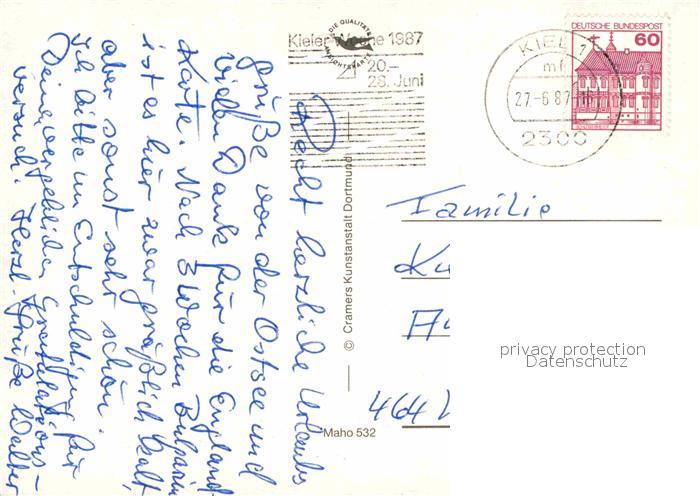 Kieler Woche 1987
20.–
28. Juni
DIE QUALITÄTS
ANSICHTSKARTE
KIEL 1
mf
27.-6.87
2300
DEUTSCHE BUNDESPOST
60
Recht herzliche Urlaubs
grüße von der Ostsee und
vielen Dank für die England
Karte. Nach 3 Wochen Bulgarien
ist es hier zwar gräßlich kalt,
aber sonst sehr schön.
Ich bitte um Entschuldigung für
Deine vergeblichen Gratulations-
versuch. Herzl. Grüße Walter
© Cramers Kunstanstalt Dortmund
Maho 532
Familie
464
privacy protection
Datenschutz